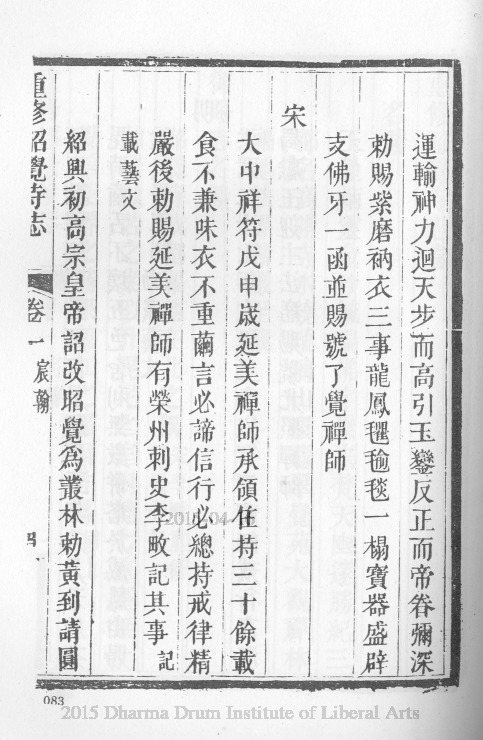 運輸神力迴天步而高引玉鑾反正而帝眷彌深
勅賜紫磨衲衣三事龍鳳氍毹毯一榻寶器盛辟
支佛牙一函並賜號了覺禪師
宋
大中祥符戊申歲延美禪師承領住持三十餘載
食不兼味衣不重繭言必諦信行必總持戒律精
嚴後勅賜延美禪師有榮州刺史李畋記其事記
載藝文
紹興初高宗皇帝詔改昭覺為叢林勅黃到請圓
重修昭覺寺志
卷一
宸翰
四
083
2015 Dharma Drum Institute of Liberal Arts